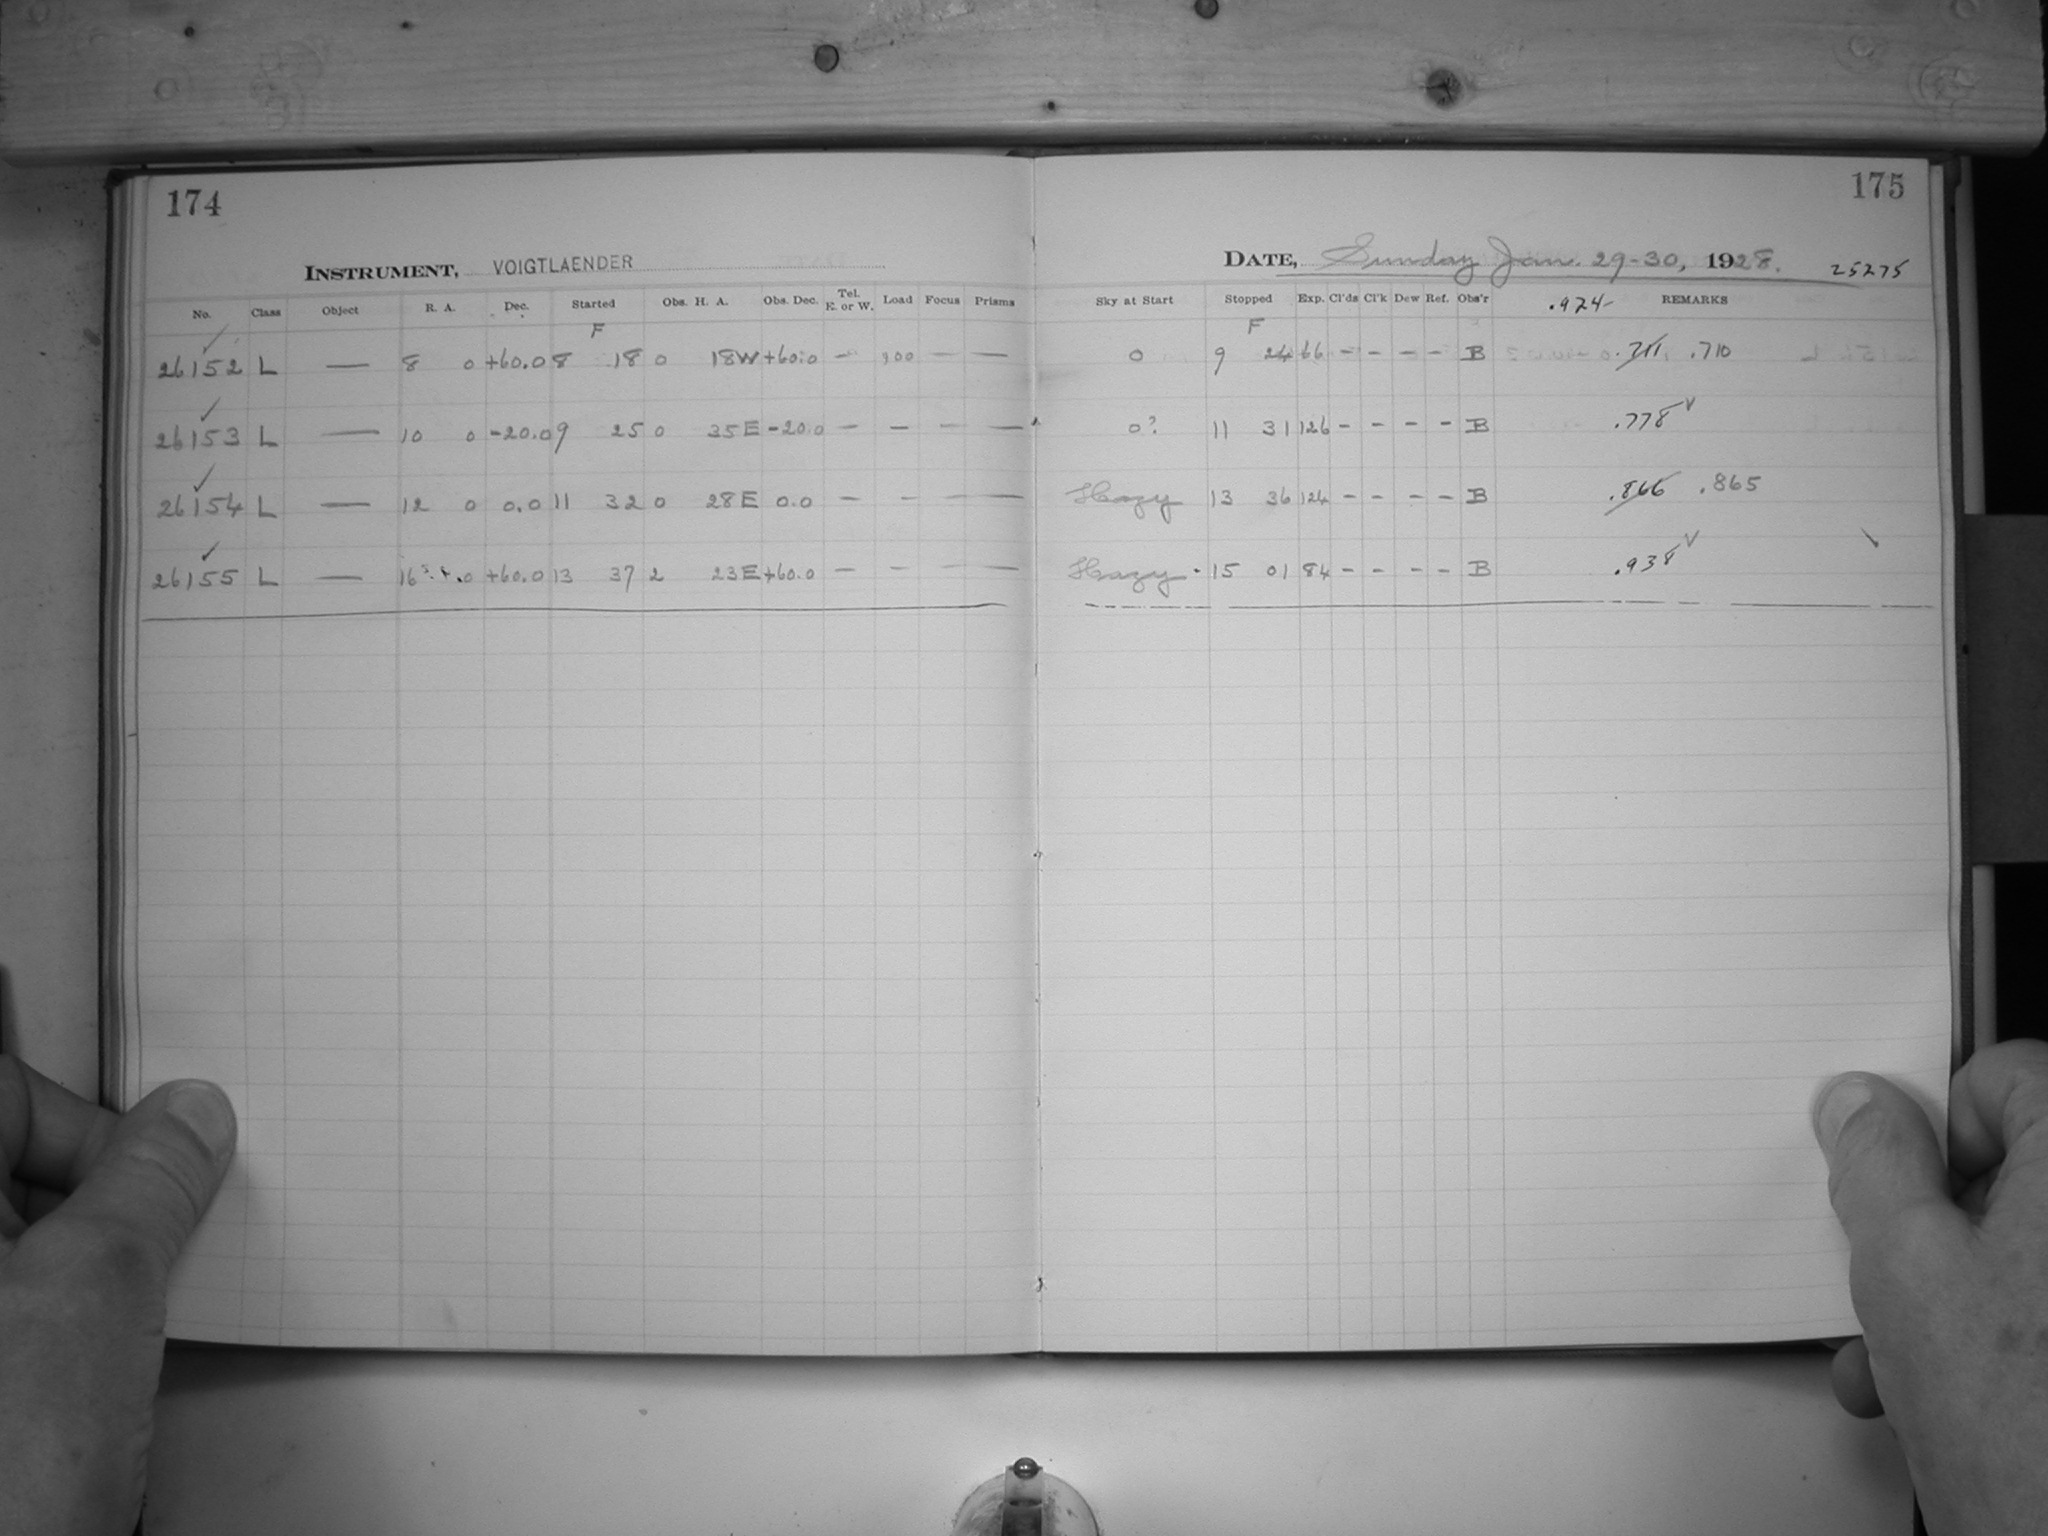 174
INSTRUMENT, VOIGTLAENDER
No. Class Object R. A. Dec. Started Obs. H. A. Obs. Dec. Tel. E. or W. Load Focus Prisms
F
26152 L — 8 0 +60.0 8 18 0 18 W +60.0 — 900 — —
26153 L — 10 0 -20.0 9 25 0 35 E -20.0 — — — —
26154 L — 12 0 0.0 11 32 0 28 E 0.0 — — — —
26155 L — 16 0 +60.0 13 37 2 23 E +60.0 — — — —
175
DATE, Sunday Jan. 29-30, 1928. 25275
Sky at Start Stopped Exp. Cl'ds Cl'k Dew Ref. Obs'r .924 REMARKS
F
0 9 24 66 - - - - B .711 .710
0? 11 31 126 - - - - B .778 v
Hazy 13 36 124 - - - - B .866 .865
Hazy 15 01 84 - - - - B .938 v